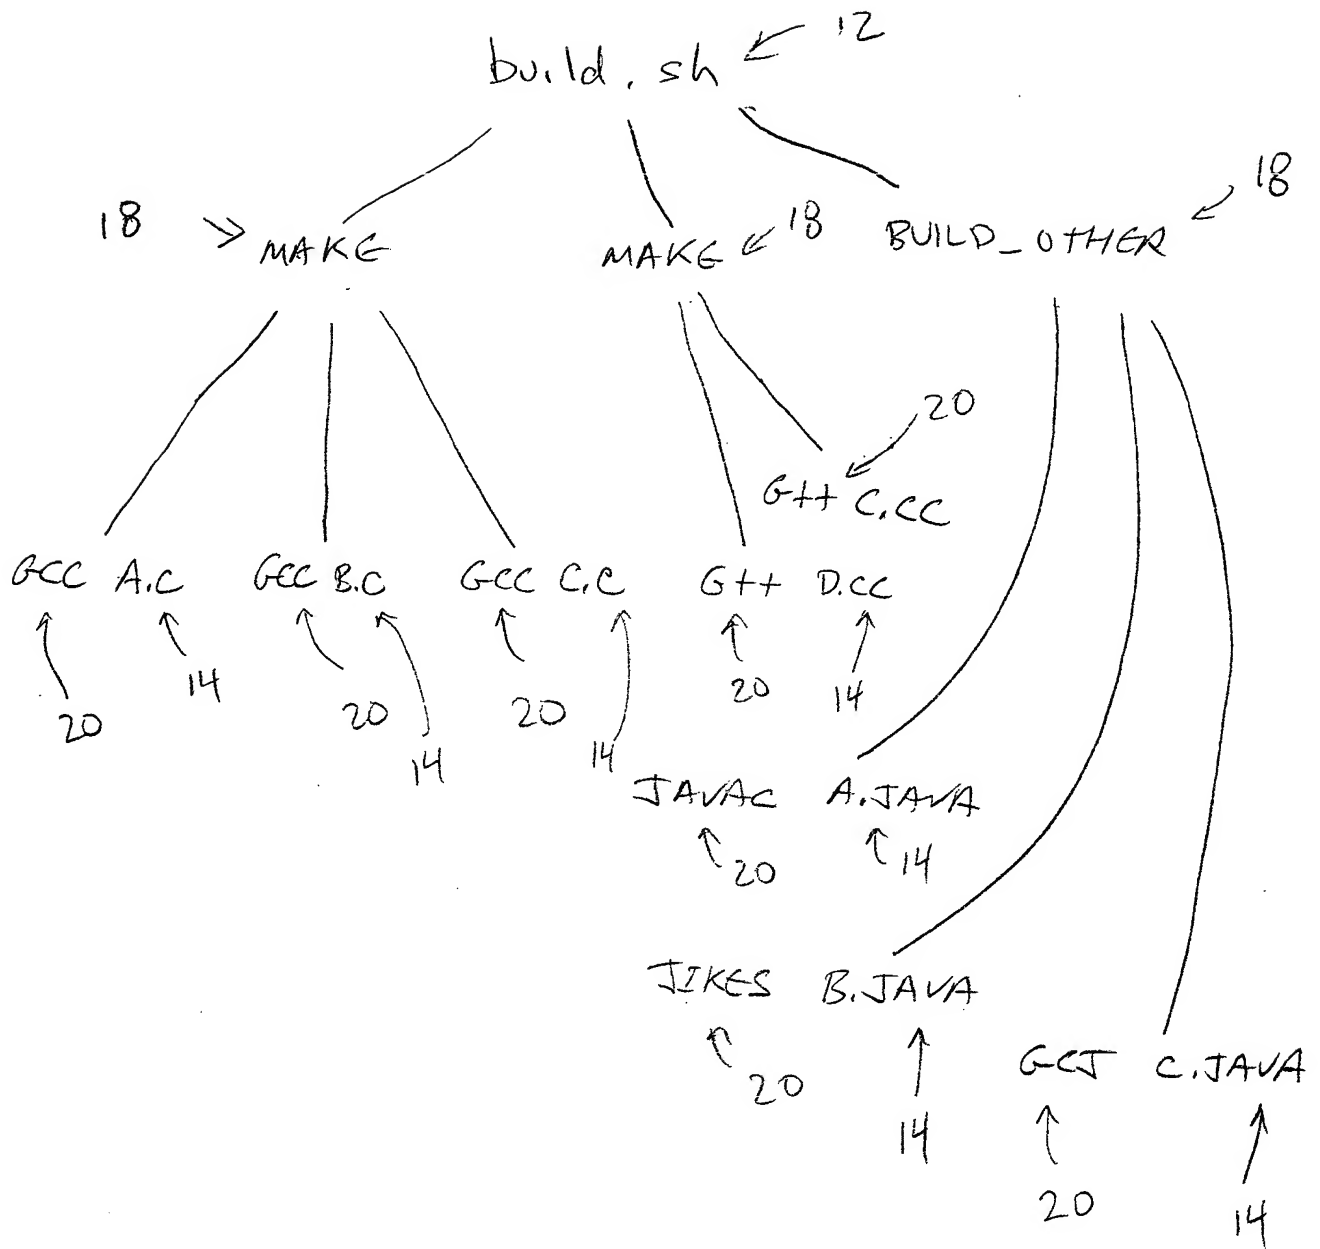 12
build.sh
18
18
18
MAKE
MAKE
BUILD_OTHER
20
G++ C.CC
GCC A.C
GCC B.C
GCC C.C
G++ D.CC
14
20
14
20
20
20
14
14
14
JAVAC A.JAVA
20
14
JIKES B.JAVA
GCJ C.JAVA
20
14
20
14